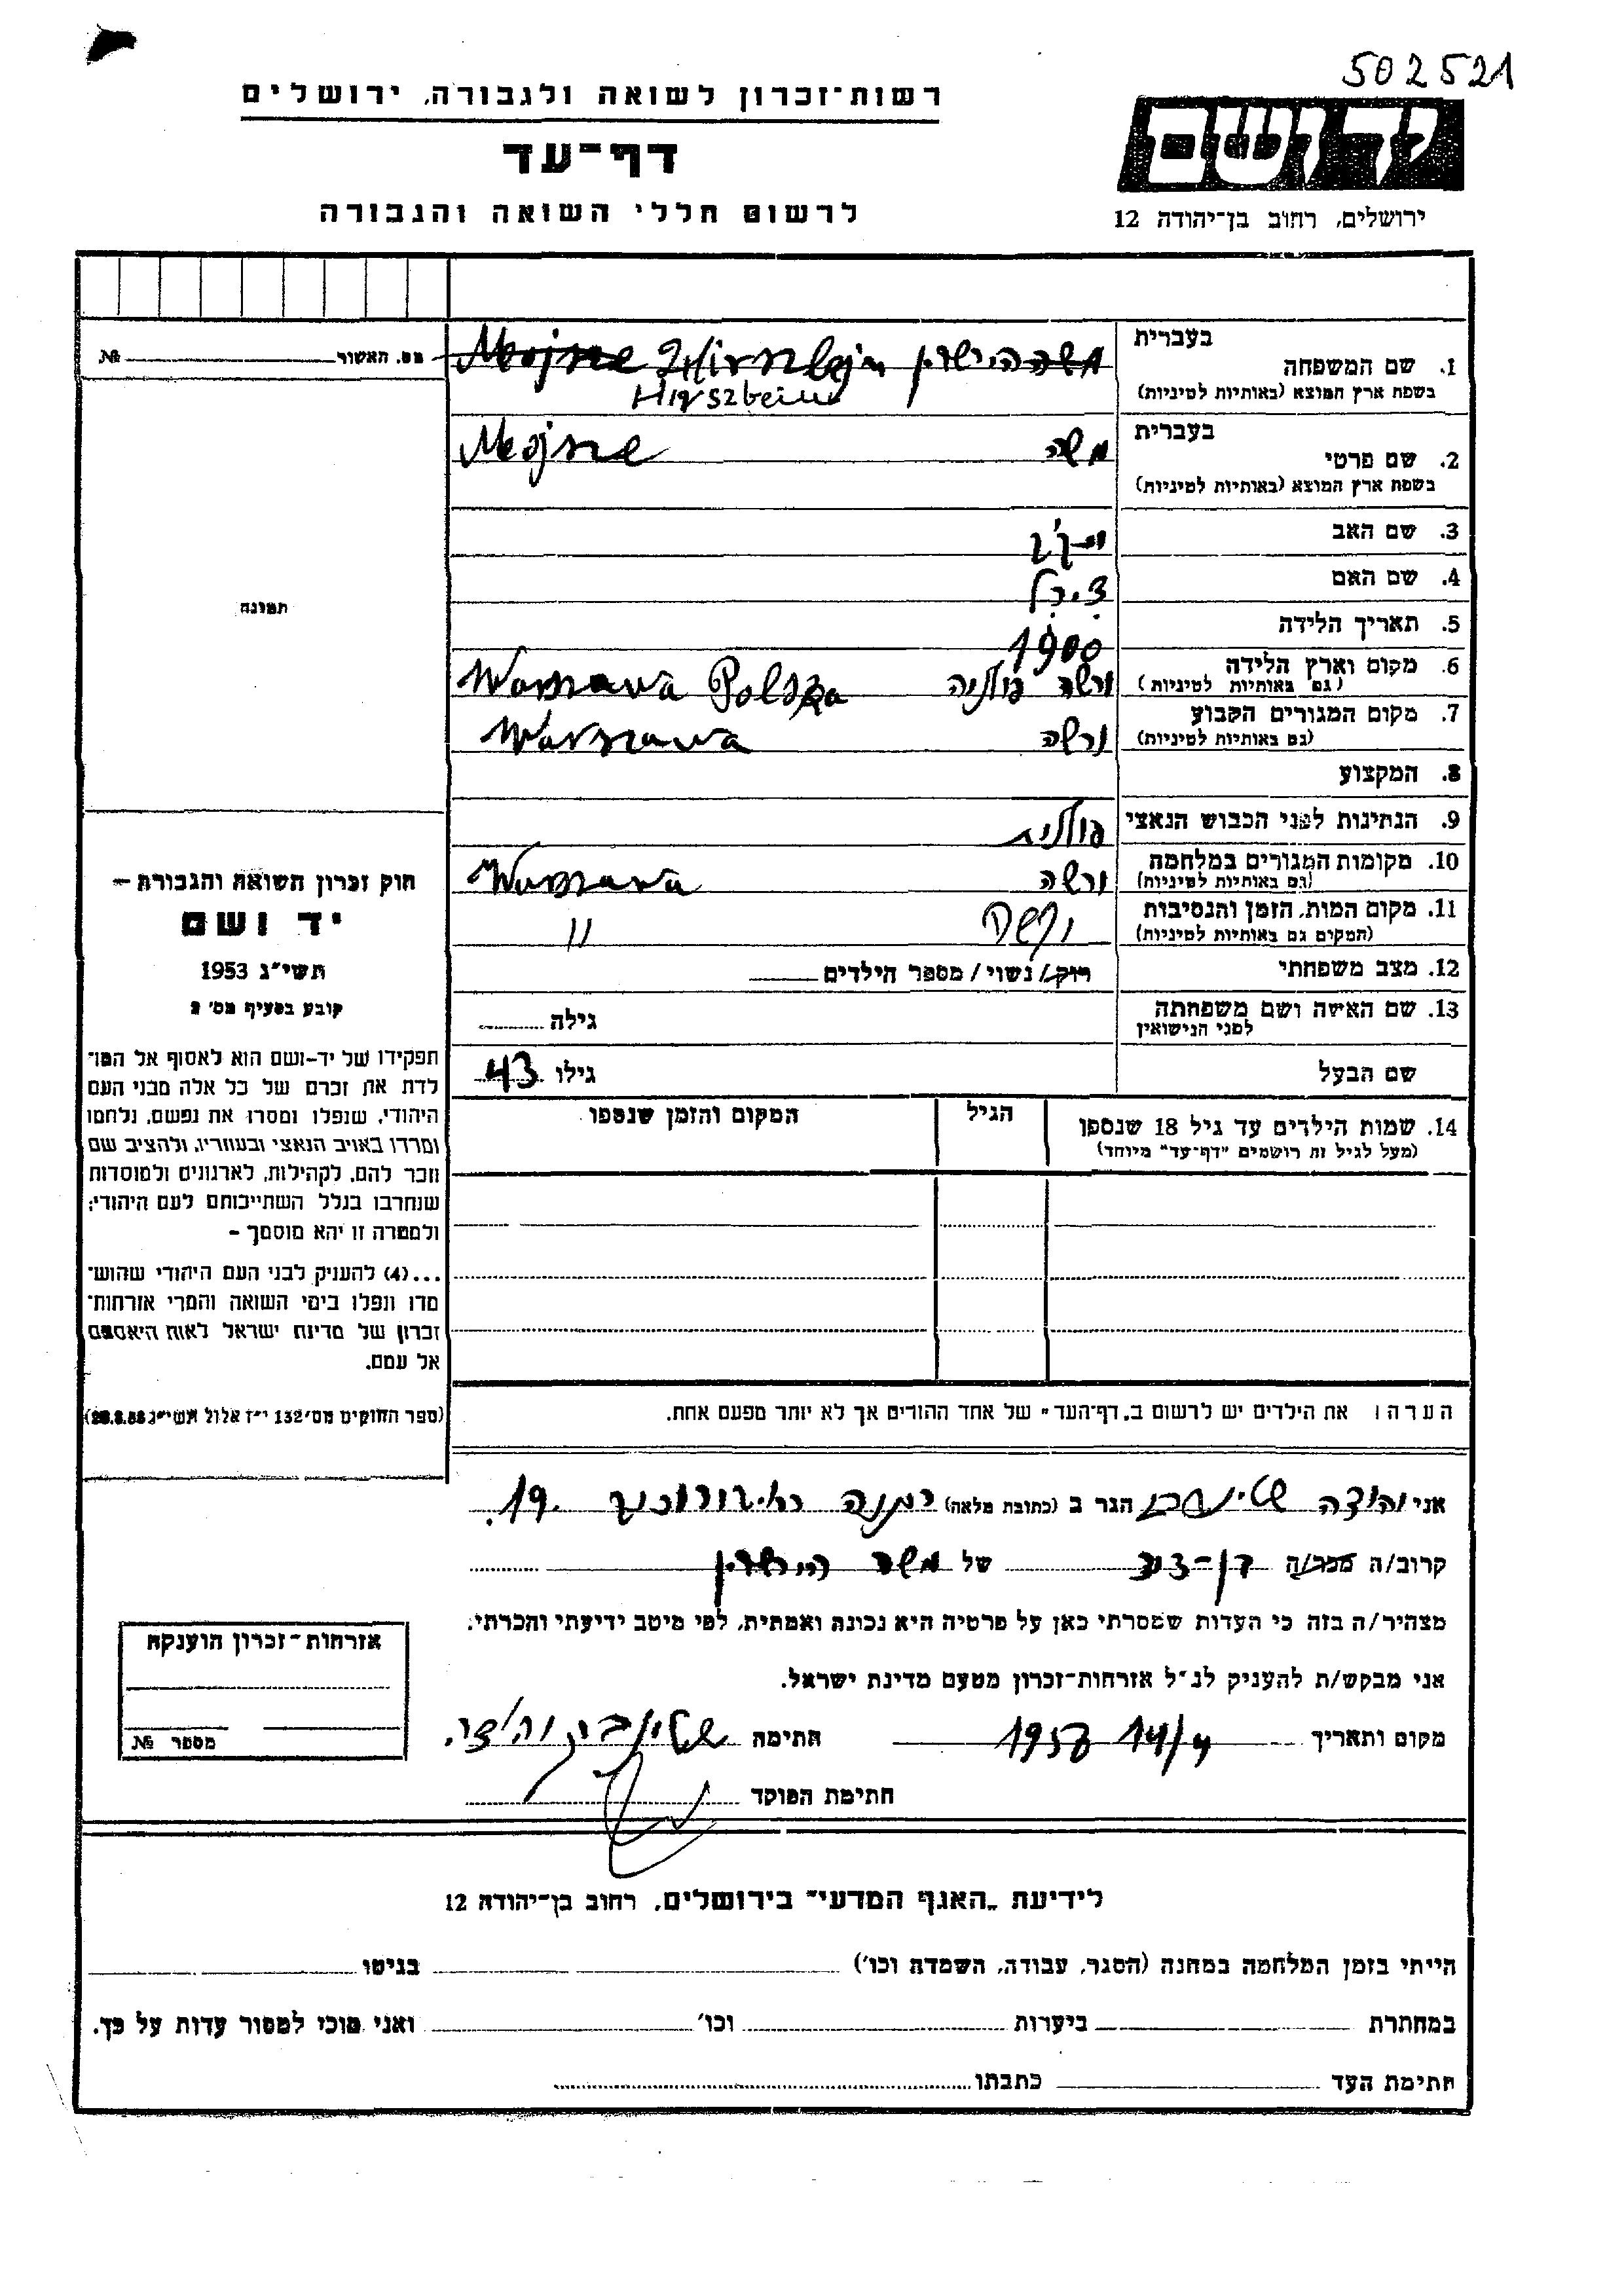 502521
רשות־זכרון לשואה ולגבורה, ירושלים
דף־עד
לרשום חללי השואה והגבורה
ידושם
ירושלים, רחוב בן־יהודה 12
מס. האשור № 
בעברית
1. שם המשפחה
בשפת ארץ המוצא (באותיות לטיניות)
משה הירשביין Mojsze Hirszbejn
Hirszbein
בעברית
2. שם פרטי משה Mojsze
בשפת ארץ המוצא (באותיות לטיניות)
3. שם האב
4. שם האם
5. תאריך הלידה 1900
6. מקום וארץ הלידה ורשה פולניה Warszawa Polska
(גם באותיות לטיניות)
7. מקום המגורים הקבוע ורשה Warszawa
(גם באותיות לטיניות)
8. המקצוע
9. הנתינות לפני הכבוש הנאצי פולנית
10. מקומות המגורים במלחמה ורשה Warszawa
(גם באותיות לטיניות)
11. מקום המות, הזמן והנסיבות ורשה "
(המקום גם באותיות לטיניות)
12. מצב משפחתי רוק/נשוי/מספר הילדים
13. שם האשה ושם משפחתה גילה
לפני הנישואין
שם הבעל גילו 43
14. שמות הילדים עד גיל 18 שנספו הגיל המקום והזמן שנספו
(מעל לגיל זה רושמים "דף־עד" מיוחד)
תמונה
חוק זכרון השואה והגבורה –
יד ושם
תשי"ג 1953
קובע בסעיף מס' 2
תפקידו של יד-ושם הוא לאסוף אל המו־
לדת את זכרם של כל אלה מבני העם
היהודי, שנפלו ומסרו את נפשם, נלחמו
ומרדו באויב הנאצי ובעוזריו, ולהציב שם
וזכר להם, לקהילות, לארגונים ולמוסדות
שנחרבו בגלל השתייכותם לעם היהודי;
ולמטרה זו יהא מוסמך –
...(4) להעניק לבני העם היהודי שהוש־
מדו ונפלו בימי השואה והמרי אזרחות־
זכרון של מדינת ישראל לאות היאספם
אל עמם.
(ספר החוקים מס' 132 י"ז אלול תשי"ג 28.8.53)
הערה: את הילדים יש לרשום ב"דף־העד" של אחד ההורים אך לא יותר מפעם אחת.
אני הגר ב (כתובת מלאה) 19.
קרוב/ה מכר/ה של משה הירשביין
מצהיר/ה בזה כי העדות שמסרתי כאן על פרטיה היא נכונה ואמתית, לפי מיטב ידיעתי והכרתי.
אני מבקש/ת להעניק לנ"ל אזרחות־זכרון מטעם מדינת ישראל.
מקום ותאריך 14/4 1958 חתימה
חתימת הפוקד
אזרחות־זכרון הוענקה
מספר №
לידיעת "האגף המדעי" בירושלים, רחוב בן־יהודה 12
הייתי בזמן המלחמה במחנה (הסגר, עבודה, השמדה וכו') בגיטו
במחתרת ביערות וכו' ואני מוכן למסור עדות על כך.
חתימת העד כתבתו